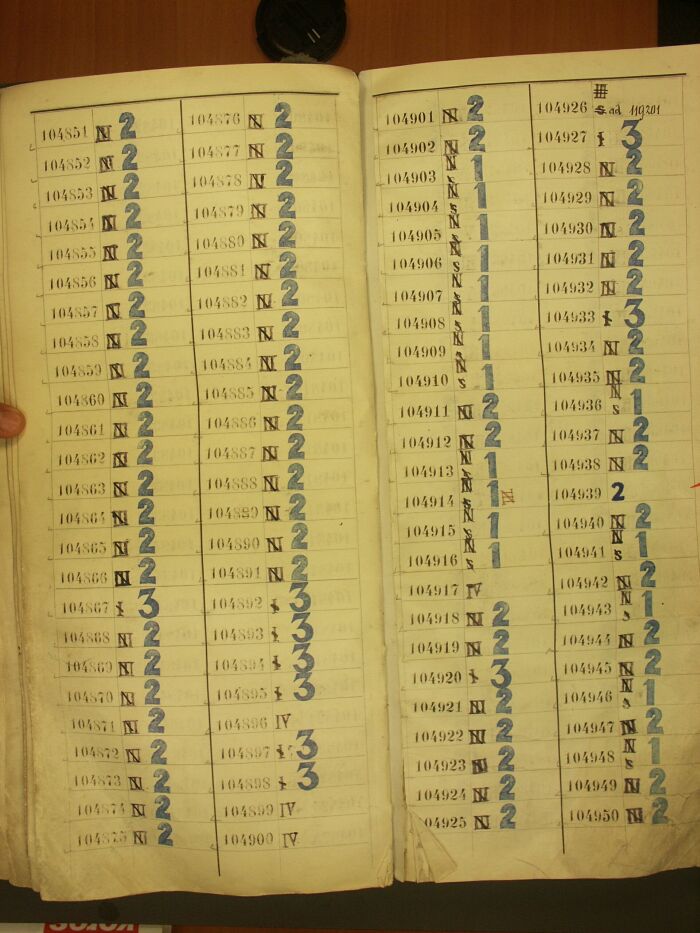 104851 N 2
104852 N 2
104853 N 2
104854 N 2
104855 N 2
104856 N 2
104857 N 2
104858 N 2
104859 N 2
104860 N 2
104861 N 2
104862 N 2
104863 N 2
104864 N 2
104865 N 2
104866 N 2
104867 I 3
104868 N 2
104869 N 2
104870 N 2
104871 N 2
104872 N 2
104873 N 2
104874 N 2
104875 N 2
104876 N 2
104877 N 2
104878 N 2
104879 N 2
104880 N 2
104881 N 2
104882 N 2
104883 N 2
104884 N 2
104885 N 2
104886 N 2
104887 N 2
104888 N 2
104889 N 2
104890 N 2
104891 N 2
104892 I 3
104893 I 3
104894 I 3
104895 I 3
104896 IV
104897 I 3
104898 I 3
104899 IV
104900 IV
104901 N 2
104902 N 2
104903 N s 1
104904 N s 1
104905 N s 1
104906 N s 1
104907 N s 1
104908 N s 1
104909 N s 1
104910 N s 1
104911 N 2
104912 N 2
104913 N s 1
104914 N s 1
104915 N s 1
104916 N s 1
104917 IV
104918 N 2
104919 N 2
104920 I 3
104921 N 2
104922 N 2
104923 N 2
104924 N 2
104925 N 2
104926 s. ad 119201
104927 I 3
104928 N 2
104929 N 2
104930 N 2
104931 N 2
104932 N 2
104933 I 3
104934 N 2
104935 N 2
104936 N s 1
104937 N 2
104938 N 2
104939 2
104940 N 2
104941 N s 1
104942 N 2
104943 N s 1
104944 N 2
104945 N 2
104946 N s 1
104947 N 2
104948 N s 1
104949 N 2
104950 N 2